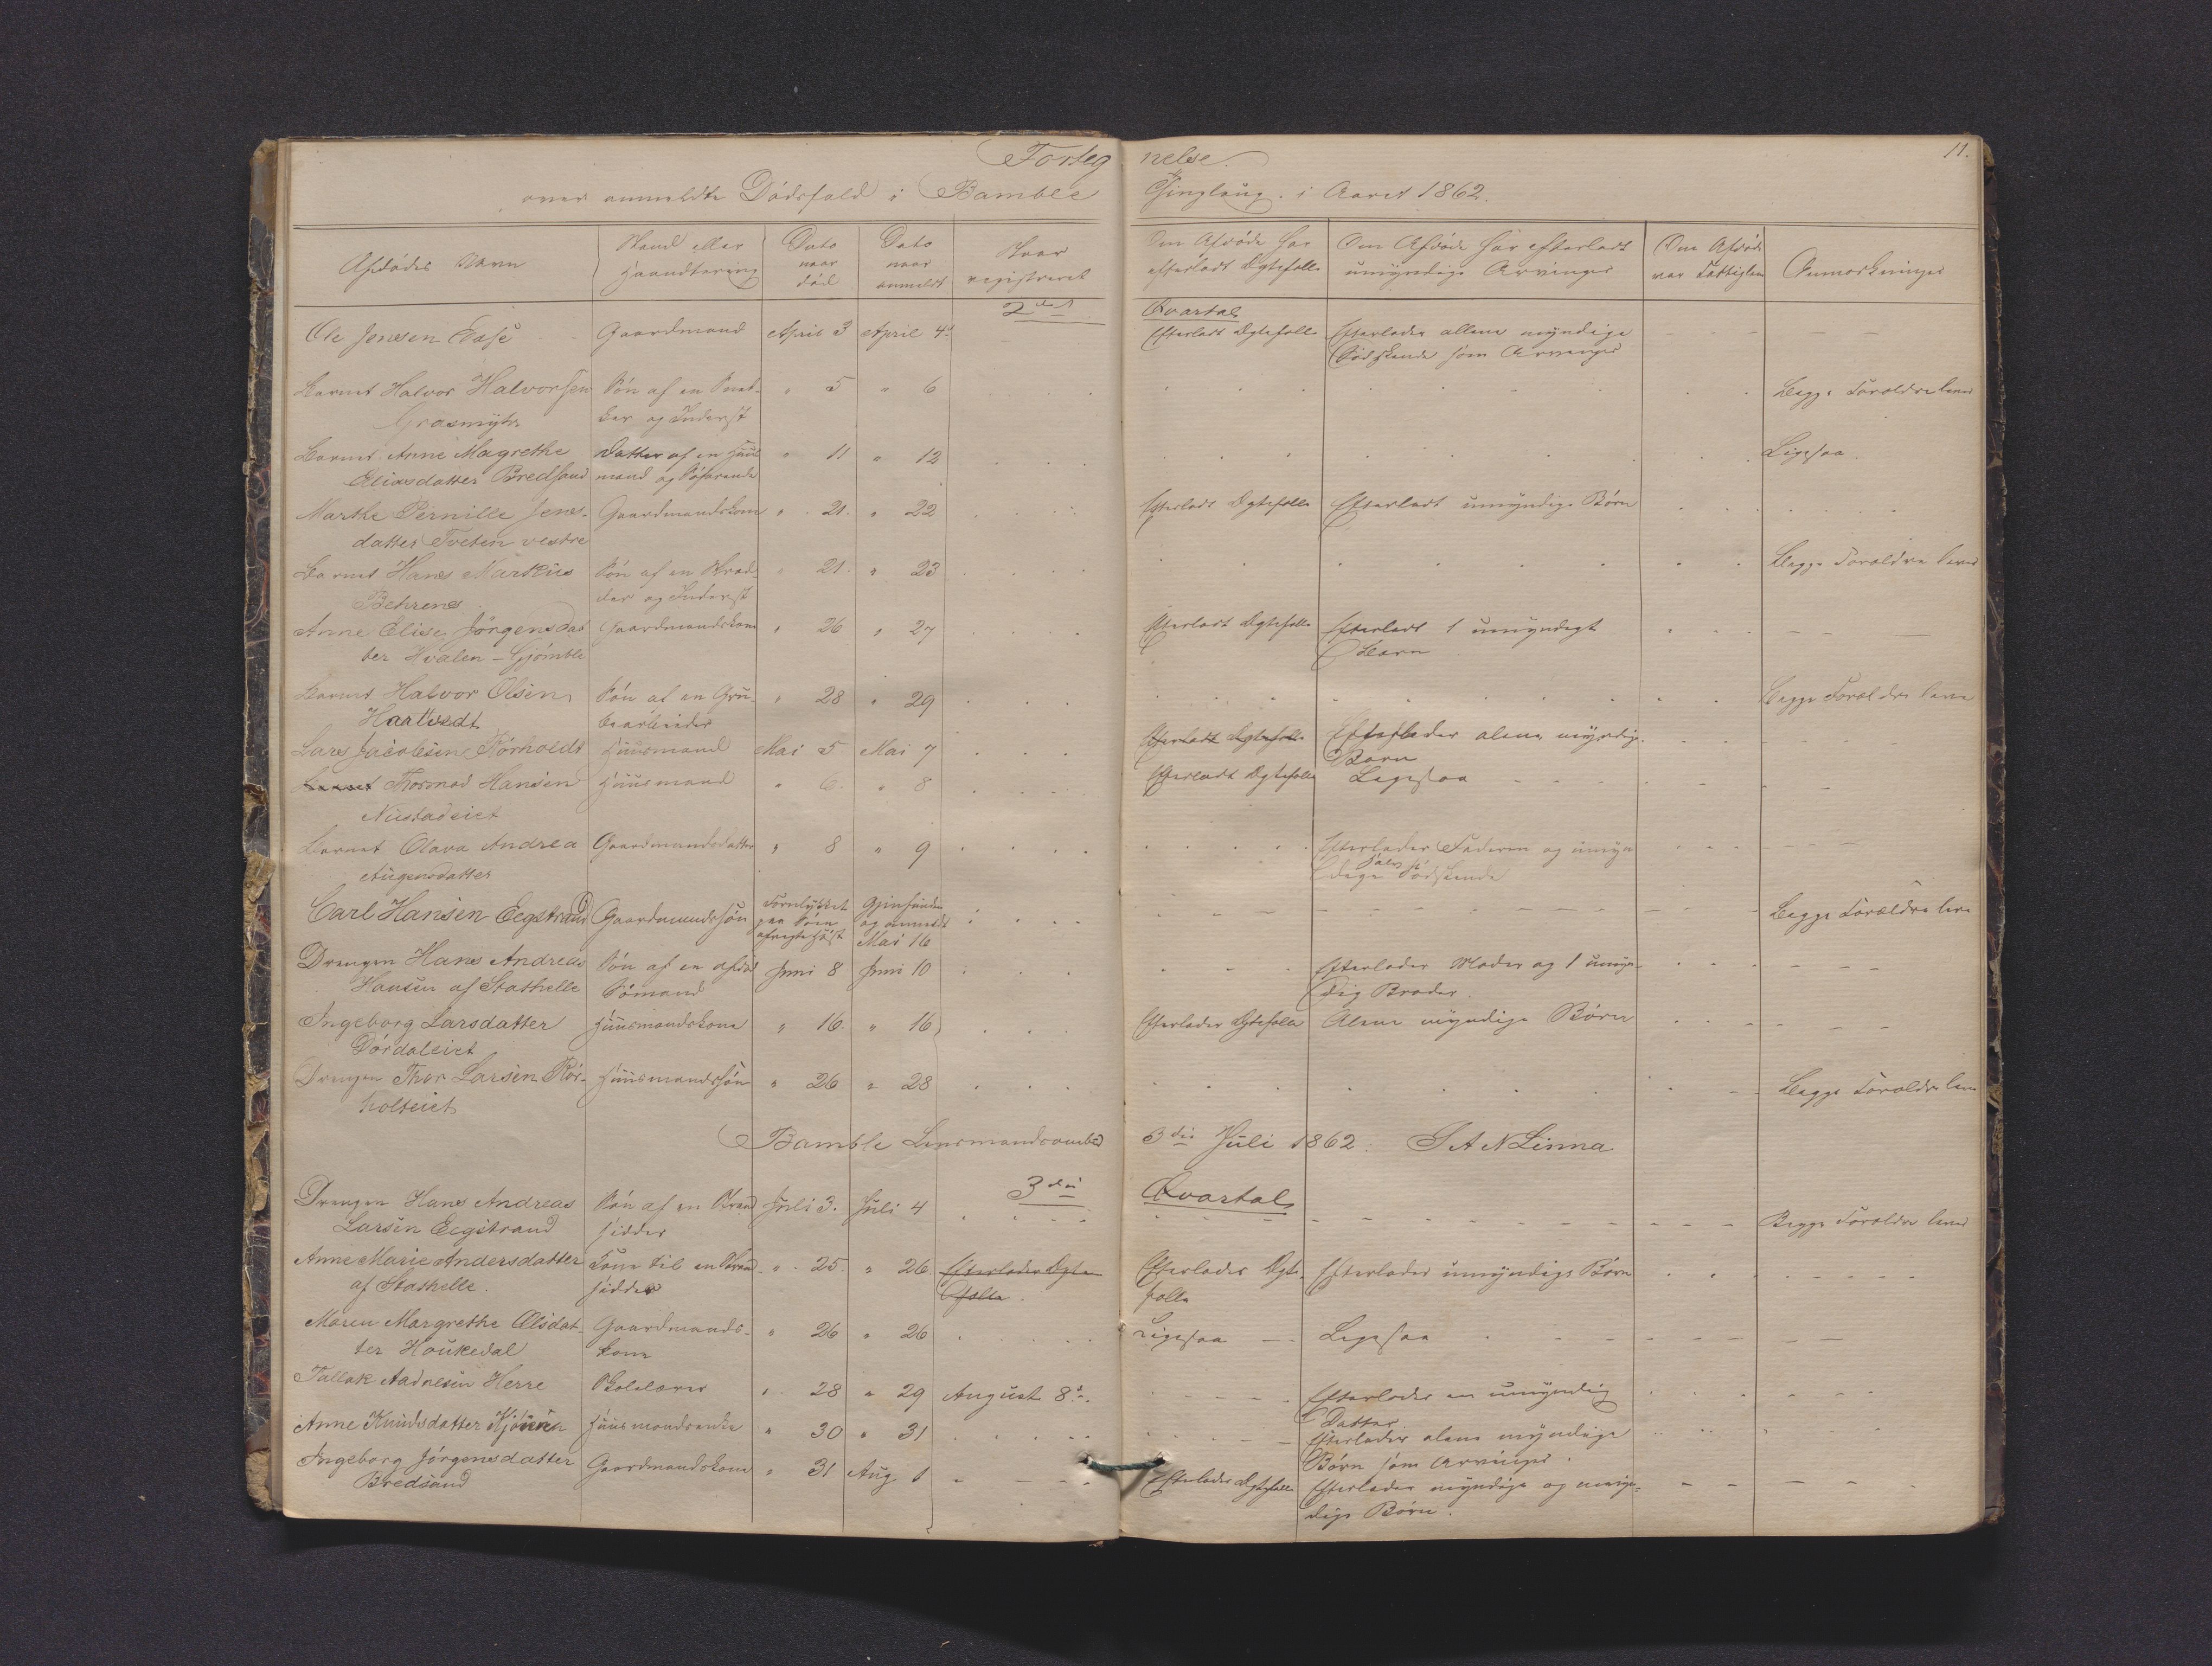 Forteg nelse.
11.
over anmeldte Dødsfald i Bamble Thinglaug i Aaret 1862.
Afdødes Navn
Stand eller Haandtering
Dato naar død
Dato naar anmeldt
Hvor registreret
Om Afdøde har efterladt Ægtefælle
Om Afdøde har efterladt umyndige Arvinger
Om Afdøde var Fattiglem
Anmærkninger
2det Qvartal
Ole Jensen Gaardmand April 3 April 4d Efterladt Ægtefælle Efterlader allene myndige
Sødskende som Arvinger
Barnet Halvor Halvorsen Søn af en Sned- " 5 " 6 Begge Forældre lever
Grasmyhr ker og Inderst
Barnet Anne Magrethe Datter af en Huus " 11 " 12 Ligesaa
Eliasdatter Bredsand mand og Søfarende
Marthe Pernille Jens- Gaardmandskone " 21. " 22 Efterladt Ægtefælle Efterladt umyndige Børn
datter Tveten vestre
Barnet Hans Markus Søn af en Skræd- " 21. " 23 Begge Forældre lever
Behrens der og Inderst
Anne Elise Jörgensdat Gaardmandskone " 26 " 27 Efterladt Ægtefælle Efterladt 1 umyndigt
ter Hvalen - Gjömle Barn
Barnet Halvor Olsen Søn af en Gru- " 28 " 29 Begge Forældre leve
Hartvedt bearbeider
Lars Jacobsen Rörholdt Huusmand Mai 5 Mai 7 Efterladt Ægtefælle Efterlader alene myndige
Børn
Barnet Thormod Hansen Huusmand " 6. " 8 Efterladt Ægtefælle Ligesaa
Nustadeiet
Barnet Olava Andrea Gaardmandsdatter " 8 " 9 Efterlader Faderen og umyn
Augensdatter dige halv Sødskende
Carl Hansen Eegstrand Gaardmandssøn Forulykket paa Søen Gjenfunden og anmeldt Mai 16 Begge Forældre leve
Drengen Hans Andreas Søn af en afdød Juni 8 Juni 10 Efterlader Moder og 1 umyn-
Hansen af Stathelle Sømand dig Broder.
Ingeborg Larsdatter Huusmandskone " 16. " 16 Efterlader Ægtefælle Alene myndige Børn
Dördaleiet
Drengen Thor Larsen Rör- Huusmandssøn " 26 " 28 Begge Forældre leve
holteiet
Bamble Lensmandsombud 3die Juli 1862. S A N Linna
3die Qvartal
Drengen Hans Andreas Søn af en Strand Juli 3. Juli 4 Begge Forældre lever
Larsen Eegstrand sidder
Anne Marie Andersdatter Kone til en Strand " 25. " 26 Efterlader Ægte Efterlader Ægte- Efterlader umyndige Børn
af Stathelle. sidder fælle. fælle
Maren Margrethe Olsdat- Gaardmands- " 26 " 26 Ligesaa Ligesaa
ter Houkedal kone
Tallak Aadnesen Herre Skolelærer " 28 " 29 August 8d. Efterlader en umyndig
Datter
Anne Knudsdatter Huusmandsenke " 30 " 31 Efterlader alene myndige
Børn som Arvinger.
Ingeborg Jörgensdatter Gaardmandskone " 31 Aug 1 Efterlader Ægtefælle Efterlader myndige og umyn-
Bredsand dige Børn.